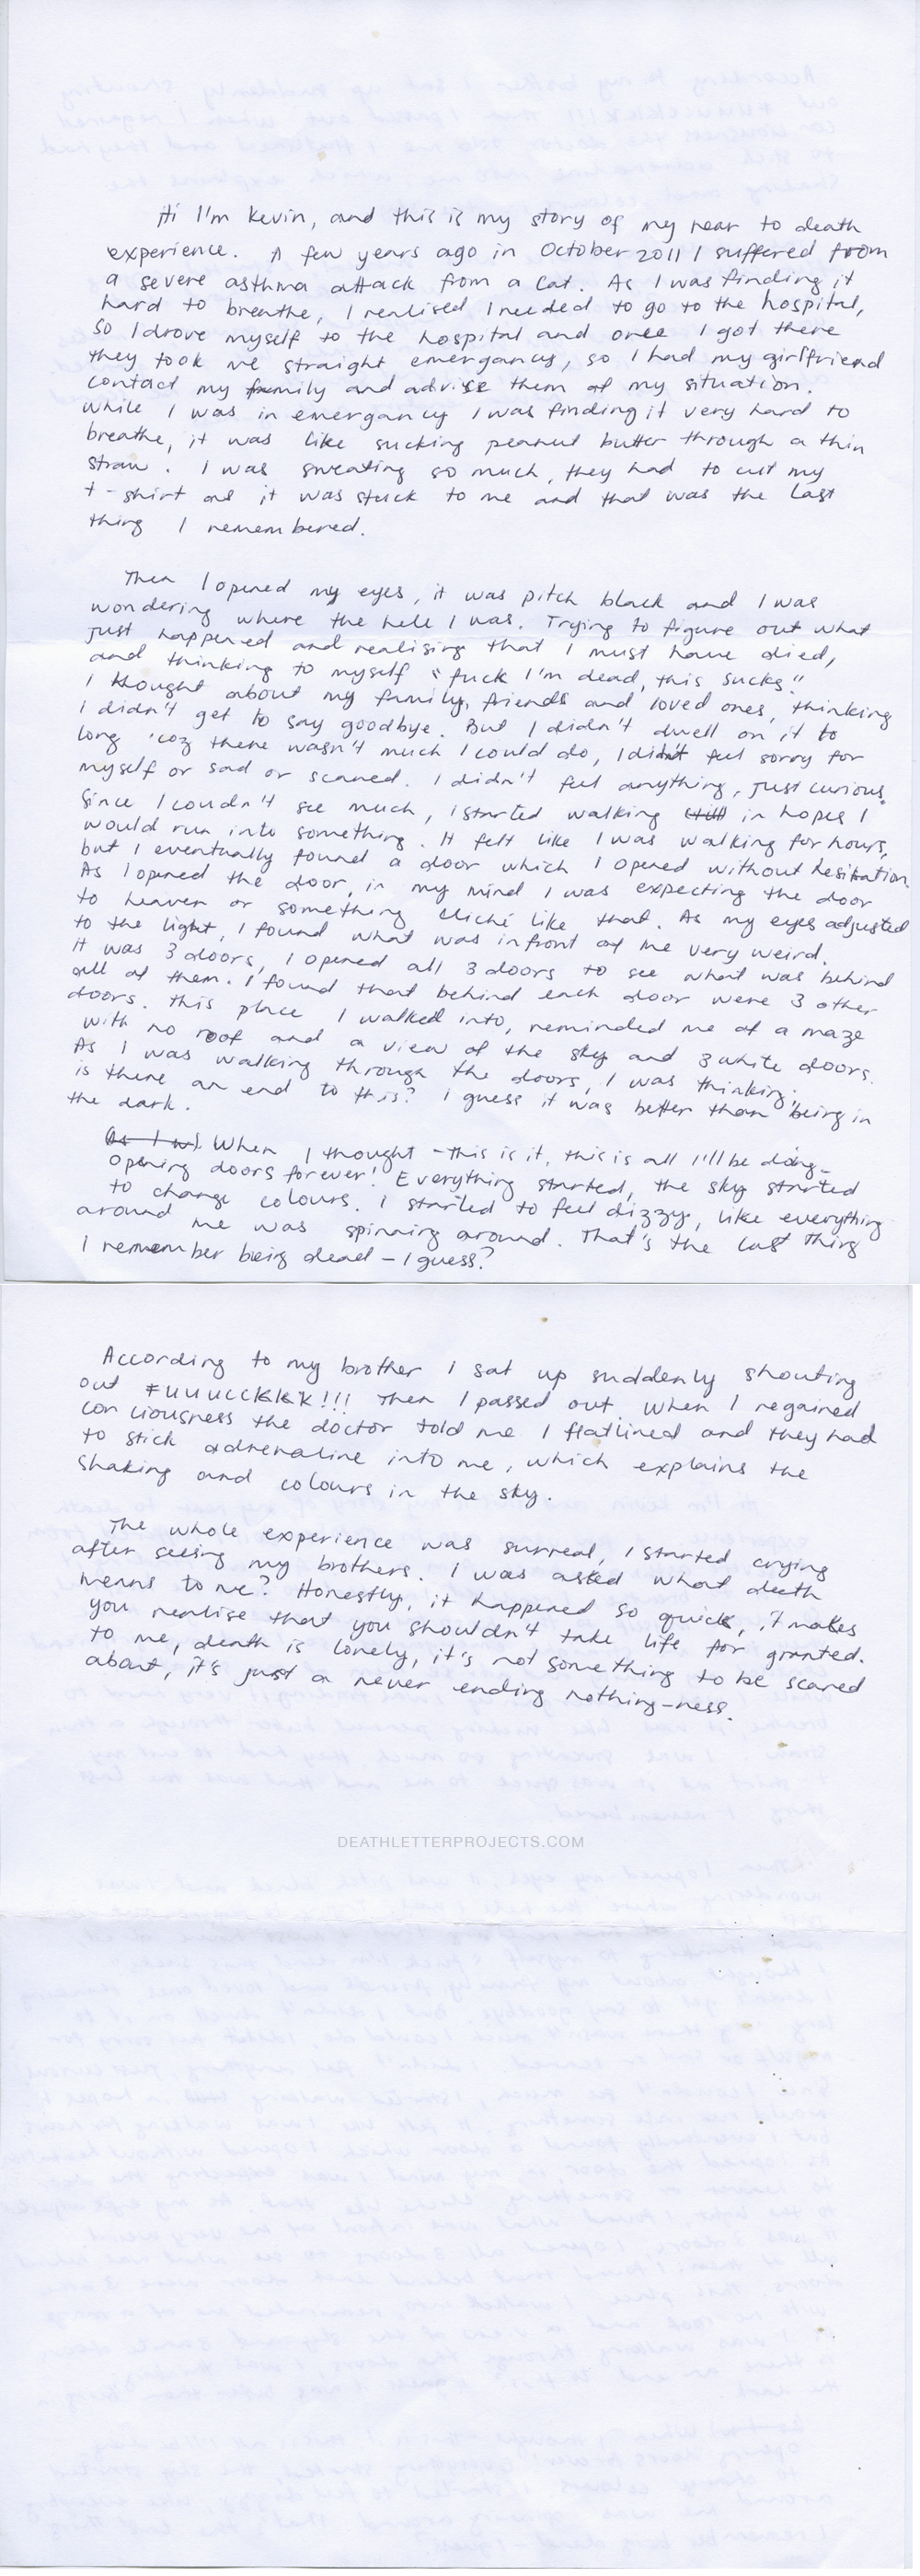 Hi I'm Kevin, and this is my story of my near to death
experience. A few years ago in October 2011 I suffered from
a severe asthma attack from a cat. As I was finding it
hard to breathe, I realised I needed to go to the hospital,
so I drove myself to the hospital and once I got there
they took me straight emergancy, so I had my girlfriend
contact my family and advise them of my situation.
While I was in emergancy I was finding it very hard to
breathe, it was like sucking peanut butter through a thin
straw. I was sweating so much, they had to cut my
t-shirt as it was stuck to me and that was the last
thing I remembered.
Then I opened my eyes, it was pitch black and I was
wondering where the hell I was. Trying to figure out what
just happened and realising that I must have died,
and thinking to myself "fuck I'm dead, this sucks."
I thought about my family, friends and loved ones, thinking
I didn't get to say goodbye. But I didn't dwell on it to
long 'coz there wasn't much I could do, I didn't feel sorry for
myself or sad or scared. I didn't feel anything, just curious.
Since I couldn't see much, I started walking in hopes I
would run into something. It felt like I was walking for hours,
but I eventually found a door which I opened without hesitation.
As I opened the door, in my mind I was expecting the door
to heaven or something cliché like that. As my eyes adjusted
to the light, I found what was infront of me very weird.
It was 3 doors, I opened all 3 doors to see what was behind
all of them. I found that behind each door were 3 other
doors. This place I walked into, reminded me of a maze
with no roof and a view of the sky and 3 white doors.
As I was walking through the doors, I was thinking;
is there an end to this? I guess it was better than being in
the dark.
When I thought - this is it, this is all I'll be doing-
opening doors forever! Everything started, the sky started
to change colours. I started to feel dizzy, like everything
around me was spinning around. That's the last thing
I remember being dead - I guess?
According to my brother I sat up suddenly shouting
out FUUUCCKKK!!! Then I passed out. When I regained
conciousness the doctor told me I flatlined and they had
to stick adrenaline into me, which explains the
shaking and colours in the sky.
The whole experience was surreal, I started crying
after seeing my brothers. I was asked what death
means to me? Honestly, it happened so quick, it makes
you realise that you shouldn't take life for granted.
to me, death is lonely, it's not something to be scared
about, it's just a never ending nothing-ness.
DEATHLETTERPROJECTS.COM